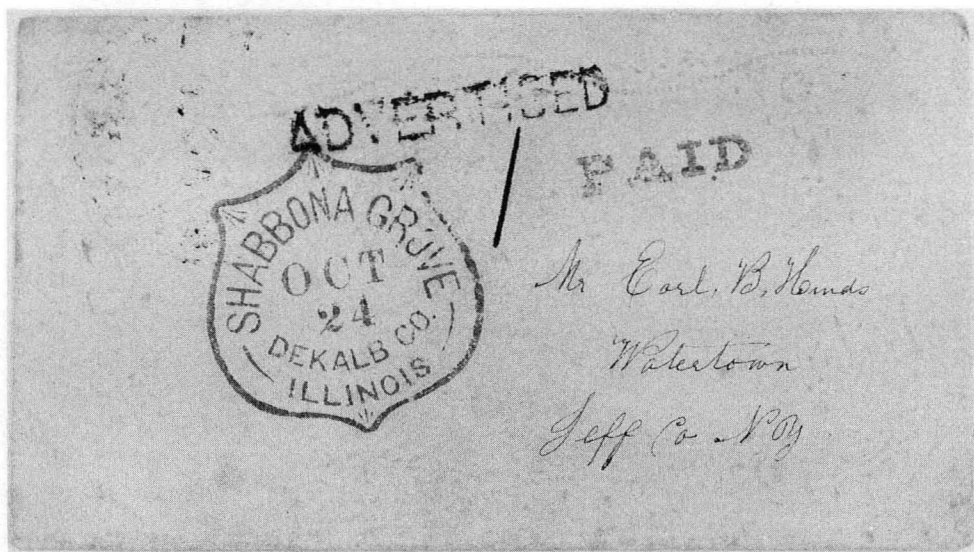 ADVERTISED
PAID
SHABBONA GROVE
OCT
24
DEKALB CO.
ILLINOIS
Mr Earl. B, Hinds
Watertown
Jeff Co N Y